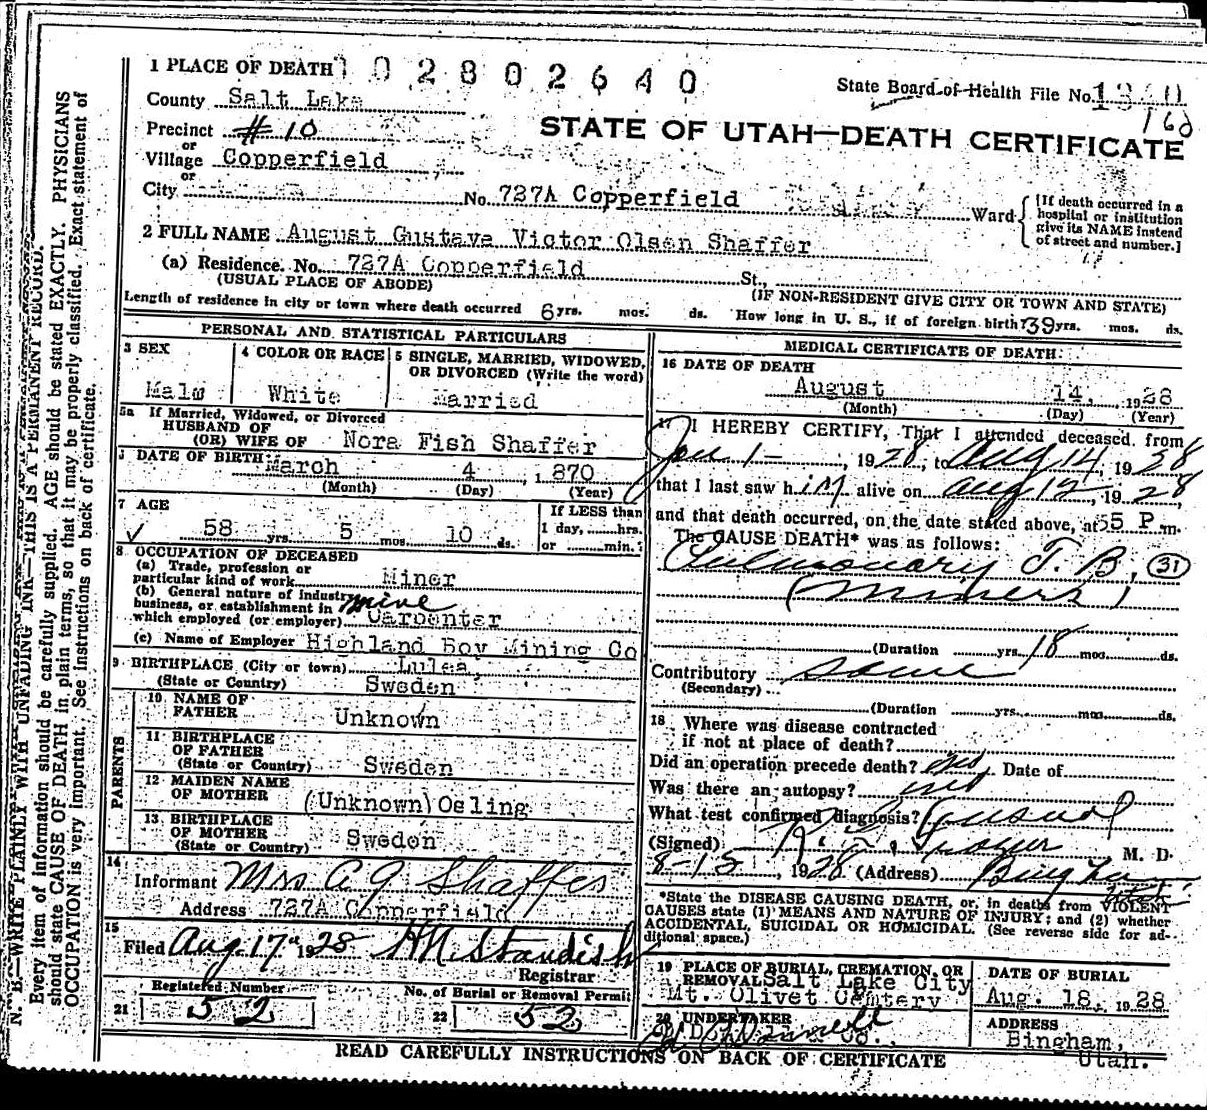 1 PLACE OF DEATH 1 0 2 8 0 2 6 4 0
State Board of Health File No. 1340
160
County Salt Lake
Precinct # 10
or
Village Copperfield
or
City
No. 727A Copperfield
Ward
[If death occurred in a
hospital or institution
give its NAME instead
of street and number.]
STATE OF UTAH—DEATH CERTIFICATE
2 FULL NAME August Gustave Victor Olsen Shaffer
(a) Residence. No. 727A Copperfield St.,
(USUAL PLACE OF ABODE)
(IF NON-RESIDENT GIVE CITY OR TOWN AND STATE)
Length of residence in city or town where death occurred 6 yrs. mos. ds. How long in U. S., if of foreign birth? 39 yrs. mos. ds.
PERSONAL AND STATISTICAL PARTICULARS
3 SEX
Male
4 COLOR OR RACE
White
5 SINGLE, MARRIED, WIDOWED,
OR DIVORCED (Write the word)
Married
5a If Married, Widowed, or Divorced
HUSBAND OF
(OR) WIFE OF Nora Fish Shaffer
DATE OF BIRTH
March 4, 1870
(Month) (Day) (Year)
7 AGE
58 yrs. 5 mos. 10 ds.
If LESS than
1 day, hrs.
or min.
8 OCCUPATION OF DECEASED
(a) Trade, profession or
particular kind of work Miner
(b) General nature of industry
business, or establishment in mine
which employed (or employer) Carpenter
(c) Name of Employer Highland Boy Mining Co
9 BIRTHPLACE (City or town) Lulea,
(State or Country) Sweden
PARENTS
10 NAME OF
FATHER Unknown
11 BIRTHPLACE
OF FATHER
(State or Country) Sweden
12 MAIDEN NAME
OF MOTHER (Unknown) Oeling
13 BIRTHPLACE
OF MOTHER
(State or Country) Sweden
14
Informant Mrs A G Shaffer
Address 727A Copperfield
15
Filed Aug 17" 1928 H M Standish
Registrar
21 Registered Number
52
22 No. of Burial or Removal Permit
52
MEDICAL CERTIFICATE OF DEATH
16 DATE OF DEATH
August 14, 1928
(Month) (Day) (Year)
17 I HEREBY CERTIFY, That I attended deceased from
Jan 1 - , 1928, to Aug 14, 1928
that I last saw him alive on Aug 12, 1928
and that death occurred, on the date stated above, at 5 P m.
The CAUSE DEATH* was as follows:
Pulmonary T. B. 31
(Miners)
(Duration yrs. 18 mos. ds.
Contributory same
(Secondary)
(Duration yrs. mos. ds.
18 Where was disease contracted
if not at place of death?
Did an operation precede death? no. Date of
Was there an autopsy? no
What test confirmed diagnosis? usual
(Signed) M. D.
8-15, 1928 (Address) Bingham
Utah
*State the DISEASE CAUSING DEATH, or, in deaths from VIOLENT
CAUSES state (1) MEANS AND NATURE OF INJURY; and (2) whether
ACCIDENTAL, SUICIDAL OR HOMICIDAL. (See reverse side for ad-
ditional space.)
19 PLACE OF BURIAL, CREMATION, OR
REMOVAL Salt Lake City
Mt. Olivet Cemtery
DATE OF BURIAL
Aug. 18, 1928
20 UNDERTAKER
Co.,
ADDRESS
Bingham,
Utah.
READ CAREFULLY INSTRUCTIONS ON BACK OF CERTIFICATE
N. B.—WRITE PLAINLY WITH UNFADING INK—THIS IS A PERMANENT RECORD.
Every item of information should be carefully supplied. AGE should be stated EXACTLY. PHYSICIANS
should state CAUSE OF DEATH in plain terms, so that it may be properly classified. Exact statement of
OCCUPATION is very important. See Instructions on back of certificate.